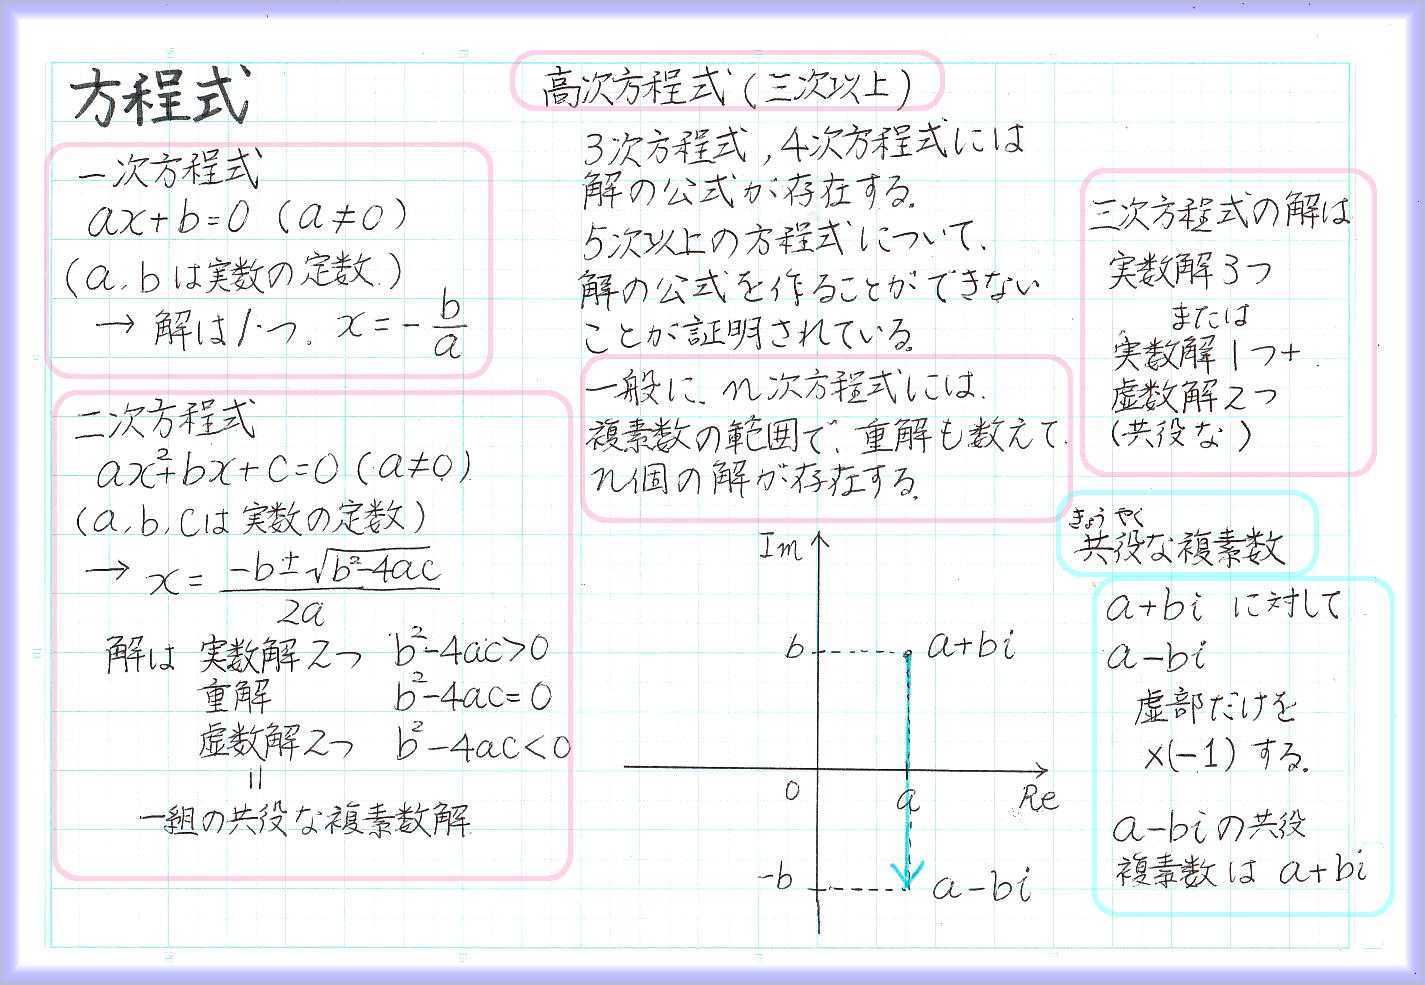 方程式
一次方程式
ax+b=0 (a≠0)
(a,bは実数の定数.)
→ 解は1つ. x=-b/a
二次方程式
ax²+bx+c=0 (a≠0)
(a,b,cは実数の定数)
→ x= -b±√b²-4ac / 2a
解は 実数解2つ b²-4ac>0
重解 b²-4ac=0
虚数解2つ b²-4ac<0
=
一組の共役な複素数解
高次方程式(三次以上)
3次方程式,4次方程式には
解の公式が存在する.
5次以上の方程式について.
解の公式を作ることができない
ことが証明されている.
一般に、n次方程式には.
複素数の範囲で、重解も数えて.
n個の解が存在する.
三次方程式の解は
実数解3つ
または
実数解1つ+
虚数解2つ
(共役な)
きょうやく
共役な複素数
a+bi に対して
a-bi
虚部だけを
×(-1)する.
a-biの共役
複素数は a+bi
Im
b
a+bi
0
a
Re
-b
a-bi